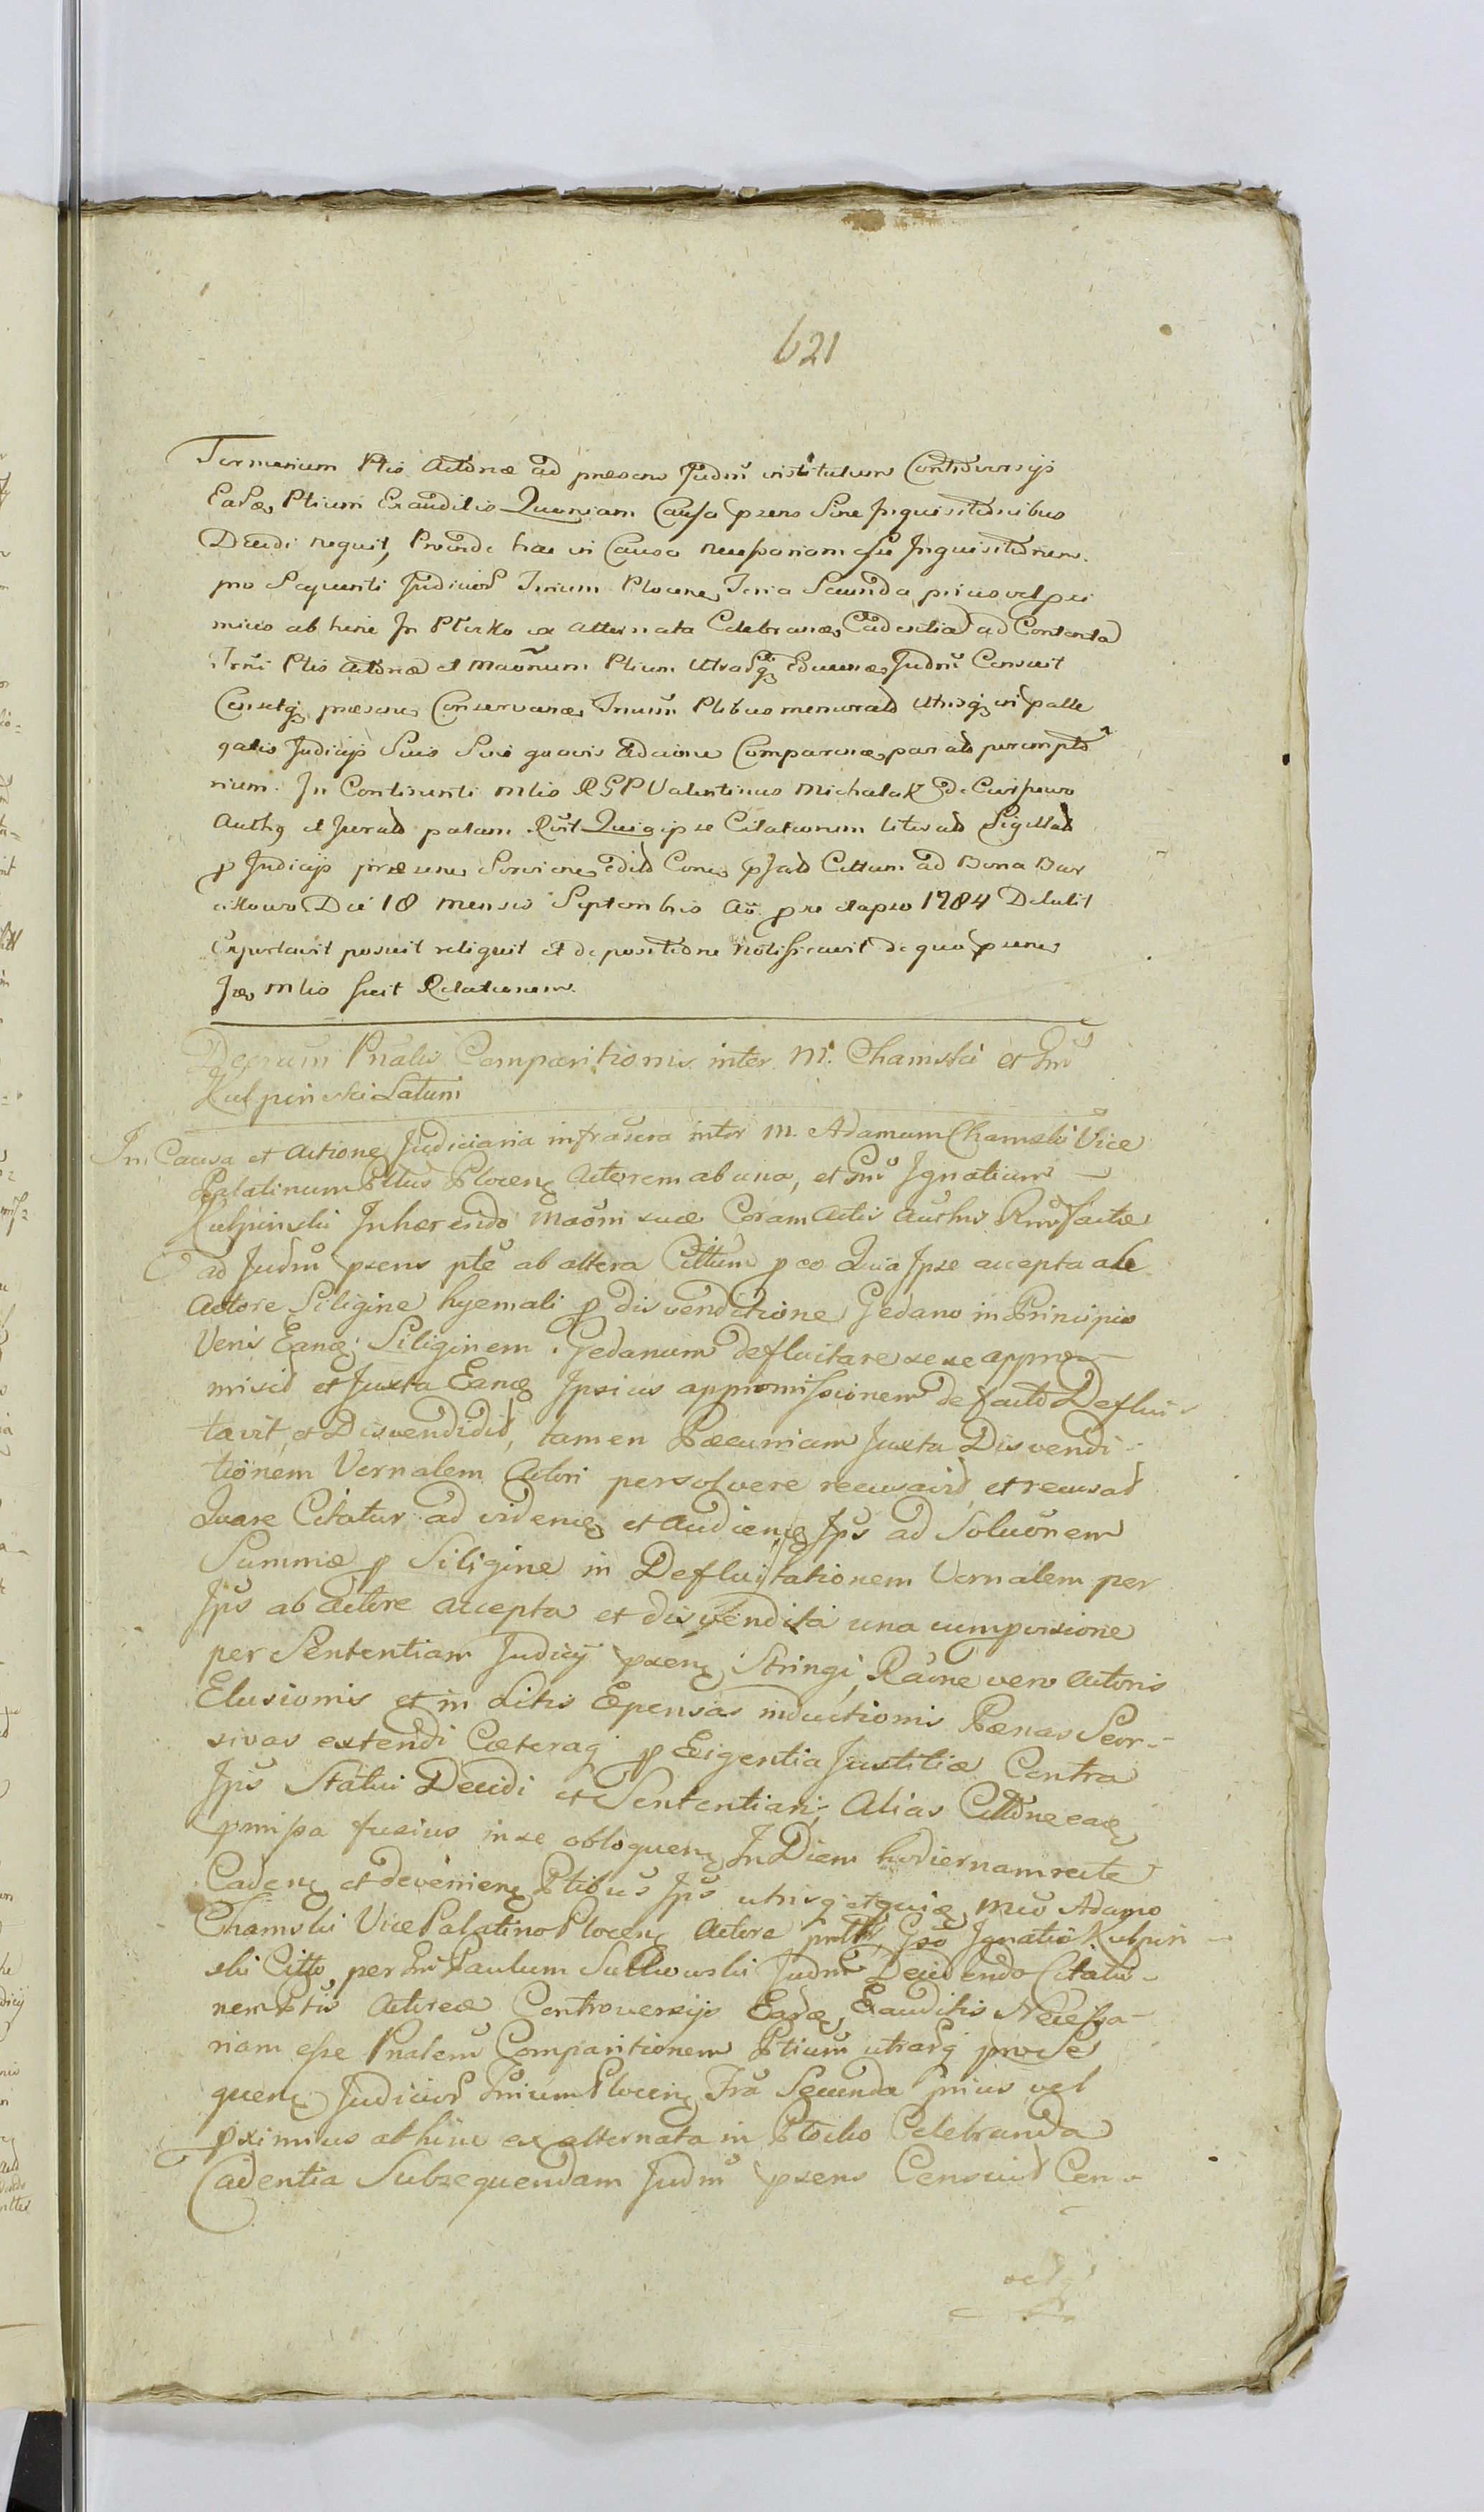 621
Terminum Ptis Actoreæ ad præsens Judm̃ institutum Controversijs
Earde, Ptium Exauditis Quoniam Causa pzens Sine Inquisitionibus
Decidi nequit, Proinde hac in Causa necessariam esse Inquisitionem
pro Sequenti Judicior Trium Plocen, Tria Secunda prius vel pri
mius ab hinc In Płocko ex Alternata Celebran, Cadentia ad Contenta
Trm̃i Ptis Actoreæ et Maõnum Ptium Utrasq Educen, Judm̃ Censuit
Censetq præsens Conservan, Trnum Ptibus memorat Utrisq in palle
gatis Judicijs Suis Sine quavis Adcione Comparen, parato perempto
rium. In Continenti Mlis RGP Valentinus Michalak de
Auth et Jurat palam Rvit Quiq ipse Citationum literato Sigillat
p Judicijs præsen, Servien, edit Conc, pJato Cittum ad Bona Bor
Die 18 mensis Septembris Aõ præ elapso 1784 Detulit
Exportavit posuit reliquit et depositione notificavit de quo psens
Jæ, Mlis fecit Relationem.
Decretum Pnalis Comparitionis inter M. Chamski et Gm̃
Kulpinski Latum
In Causa et Actione Judiciaria infrascra inter M. Adamum Chamski Vice
Palatinum Pttus Plocen Actorem ab una, et Gm̃ Ignatium
Kulpinski Inhærendo Maõni suæ Coram Actis Authis Rnvs factæ
ad Judm̃ psens pte ab altera Cittum p eo Quia Ipse accepta ab
Actore Siligine hyemali p disvenditione Gedano in Principio
Veris Eand Siliginem Gedanum defluitare sese appro
misit et Juxta Eand Ipsius appromissionem de facto Deflui
tavit et Disvendidit, tamen Pæcuniam Juxta Disvendi-
tionem Vernalem Actori persolvere recusavit et recusat
Quare Citatur ad viden et Audien Ips ad Soluõnem
Summæ p Siligine in Defluitationem Vernalem per
Ips ab Actore accepta et disvendita una cum pvisione
per Sententiam Judicij psen Stringi, Raõne vero Actoris
Elusionis et in Litis Expensas inductionis Pænas Seor-
sivas extendi Cæteraq p Exigentia Justitiæ Contra
Ips Statui Decidi et Sententiari, Alias Cittõne eaq
pmissa fusius in se obloquen In Diem hodiernam recte
Caden et devenien Ptibus Ips utrisq etquiæ Mco Adamo
Chamski Vice Palatino Plocen Actore Gso Ignatio Kulpin
ski Citto per Gm̃ Paulum Sulkowski Judm̃ Decidendo Citatio-
nem Ptis Actoreæ Controversijs Earde Exauditis Necessa-
riam esse Pnalem Comparitionem Ptium utrasq pro Se
quen Judicior Trium Plocen Tria Secunda prius vel
pximius abhinc ex alternata in Płocko Celebranda
Cadentia Subsequendam Judm̃ psens Censuit Cen-
setq